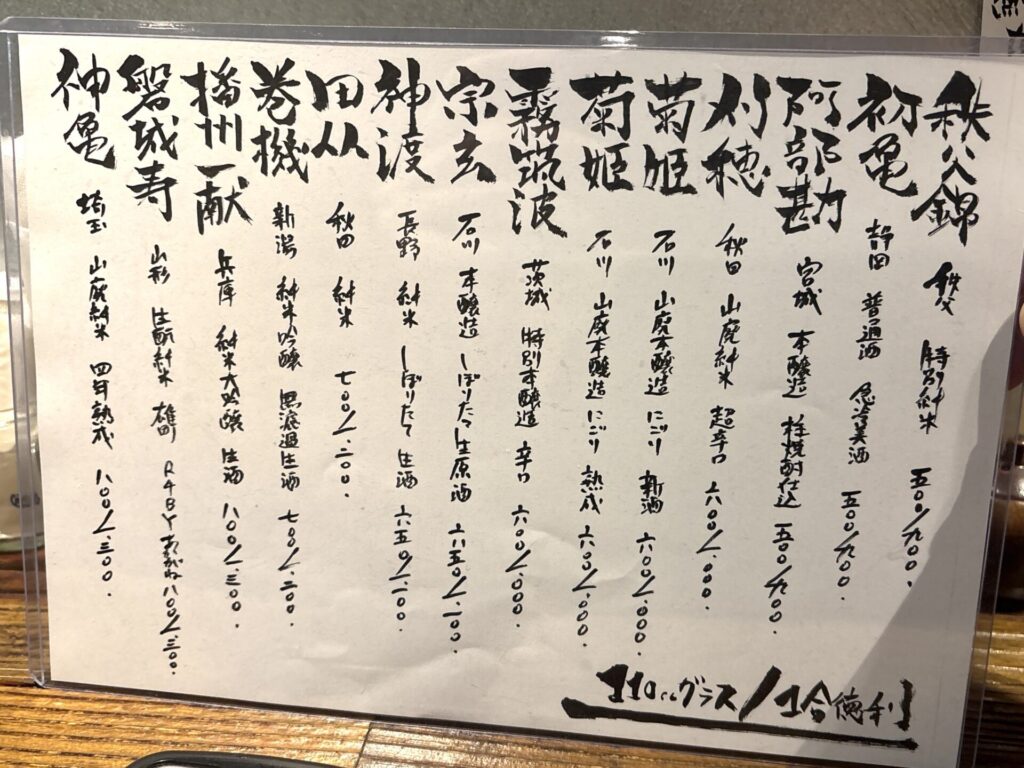 秩父錦 秩父 特別純米 五〇〇/九〇〇.
初亀 静岡 普通酒 急冷美酒 五〇〇/九〇〇.
阿部勘 宮城 本醸造 粕焼酎仕込 五〇〇/九〇〇
刈穂 秋田 山廃純米 超辛口 六〇〇/一.〇〇〇.
菊姫 石川 山廃本醸造 にごり 新酒 六〇〇/一.〇〇〇.
菊姫 石川 山廃本醸造 にごり 熟成 六〇〇/一.〇〇〇.
霧筑波 茨城 特別本醸造 辛口 六〇〇/一.〇〇〇
宗玄 石川 本醸造 しぼりたて生原酒 六五〇/一.一〇〇
神渡 長野 純米 しぼりたて 生酒 六五〇/一.一〇〇.
田从 秋田 純米 七〇〇/一.二〇〇.
巻機 新潟 純米吟醸 無濾過生酒 七〇〇/一.二〇〇.
播州一献 兵庫 純米大吟醸 生酒 八〇〇/一.三〇〇
磐城寿 山形 生酛純米 雄町 R4BYあかがね 八〇〇/一.三〇〇.
神亀 埼玉 山廃純米 四年熟成 八〇〇/一.三〇〇.
110ccグラス/1合徳利